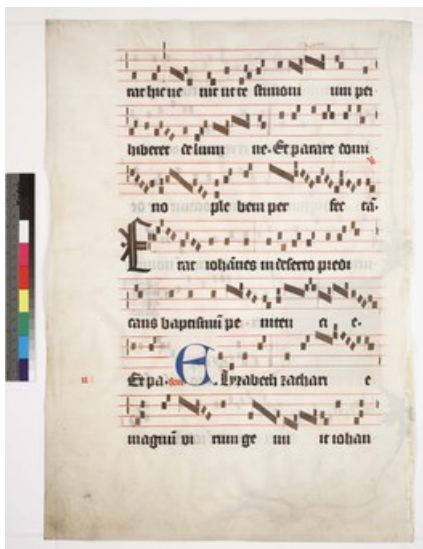 rat hic ue nit ut te stimoni um pei
hiberet de lumi ne. Et parare domi
no ple bem per fec tā.
E rat iohānes in deserto predi
cans baptismū pe niten ci e.
Et pa. E lyzabeth zachari e
magnū ui rum ge nu it iohan